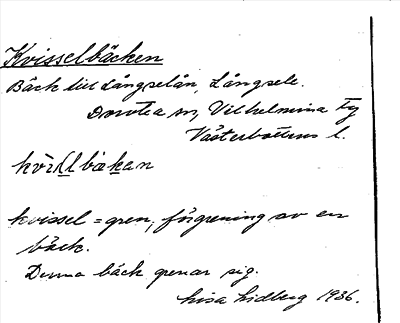 Kvisselbäcken
Bäck till Långselån, Långsele.
Dorotea sn, Vilhelmina tg
Västerbottens l.
bækan
kvissel = gren, förgrening av en
bäck.
Denna bäck grenar sig.
Lisa Lidberg 1936.